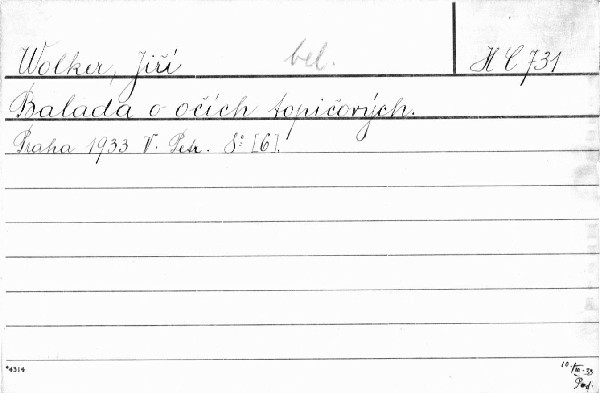 Wolker, Jiří bel. H C 731
Balada o očích topičových.
Praha 1933 V. Petr. 8° [6].
*4314
10. VIII. 33
Pod.